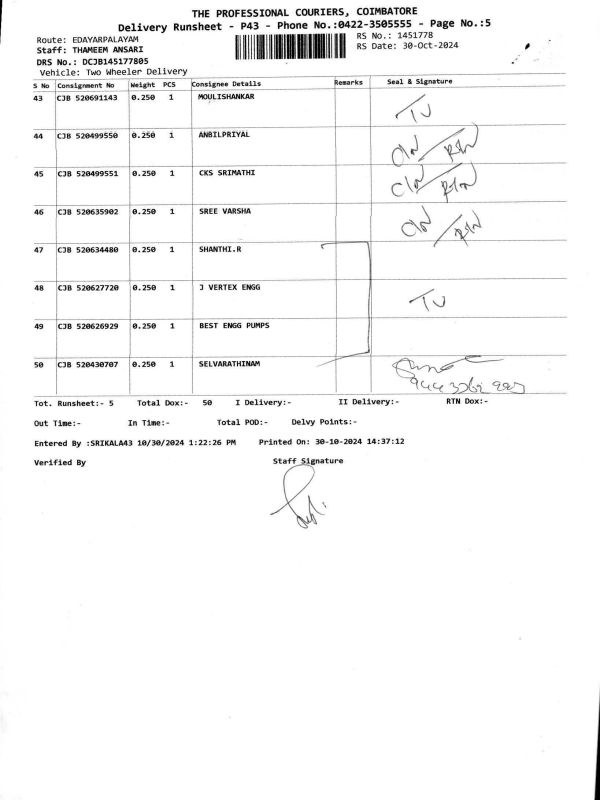 THE PROFESSIONAL COURIERS, COIMBATORE
Delivery Runsheet - P43 - Phone No.:0422-3505555 - Page No.:5
Route: EDAYARPALAYAM
RS No.: 1451778
Staff: THAMEEM ANSARI
RS Date: 30-Oct-2024
DRS No.: DCJB145177805
Vehicle: Two Wheeler Delivery
S No Consignment No Weight PCS Consignee Details Remarks Seal & Signature
43 CJB 520691143 0.250 1 MOULISHANKAR
44 CJB 520499550 0.250 1 ANBILPRIYAL
45 CJB 520499551 0.250 1 CKS SRIMATHI
46 CJB 520635902 0.250 1 SREE VARSHA
47 CJB 520634480 0.250 1 SHANTHI.R
48 CJB 520627720 0.250 1 J VERTEX ENGG
49 CJB 520626929 0.250 1 BEST ENGG PUMPS
50 CJB 520430707 0.250 1 SELVARATHINAM
Tot. Runsheet:- 5 Total Dox:- 50 I Delivery:- II Delivery:- RTN Dox:-
Out Time:- In Time:- Total POD:- Delvy Points:-
Entered By :SRIKALA43 10/30/2024 1:22:26 PM Printed On: 30-10-2024 14:37:12
Verified By Staff Signature